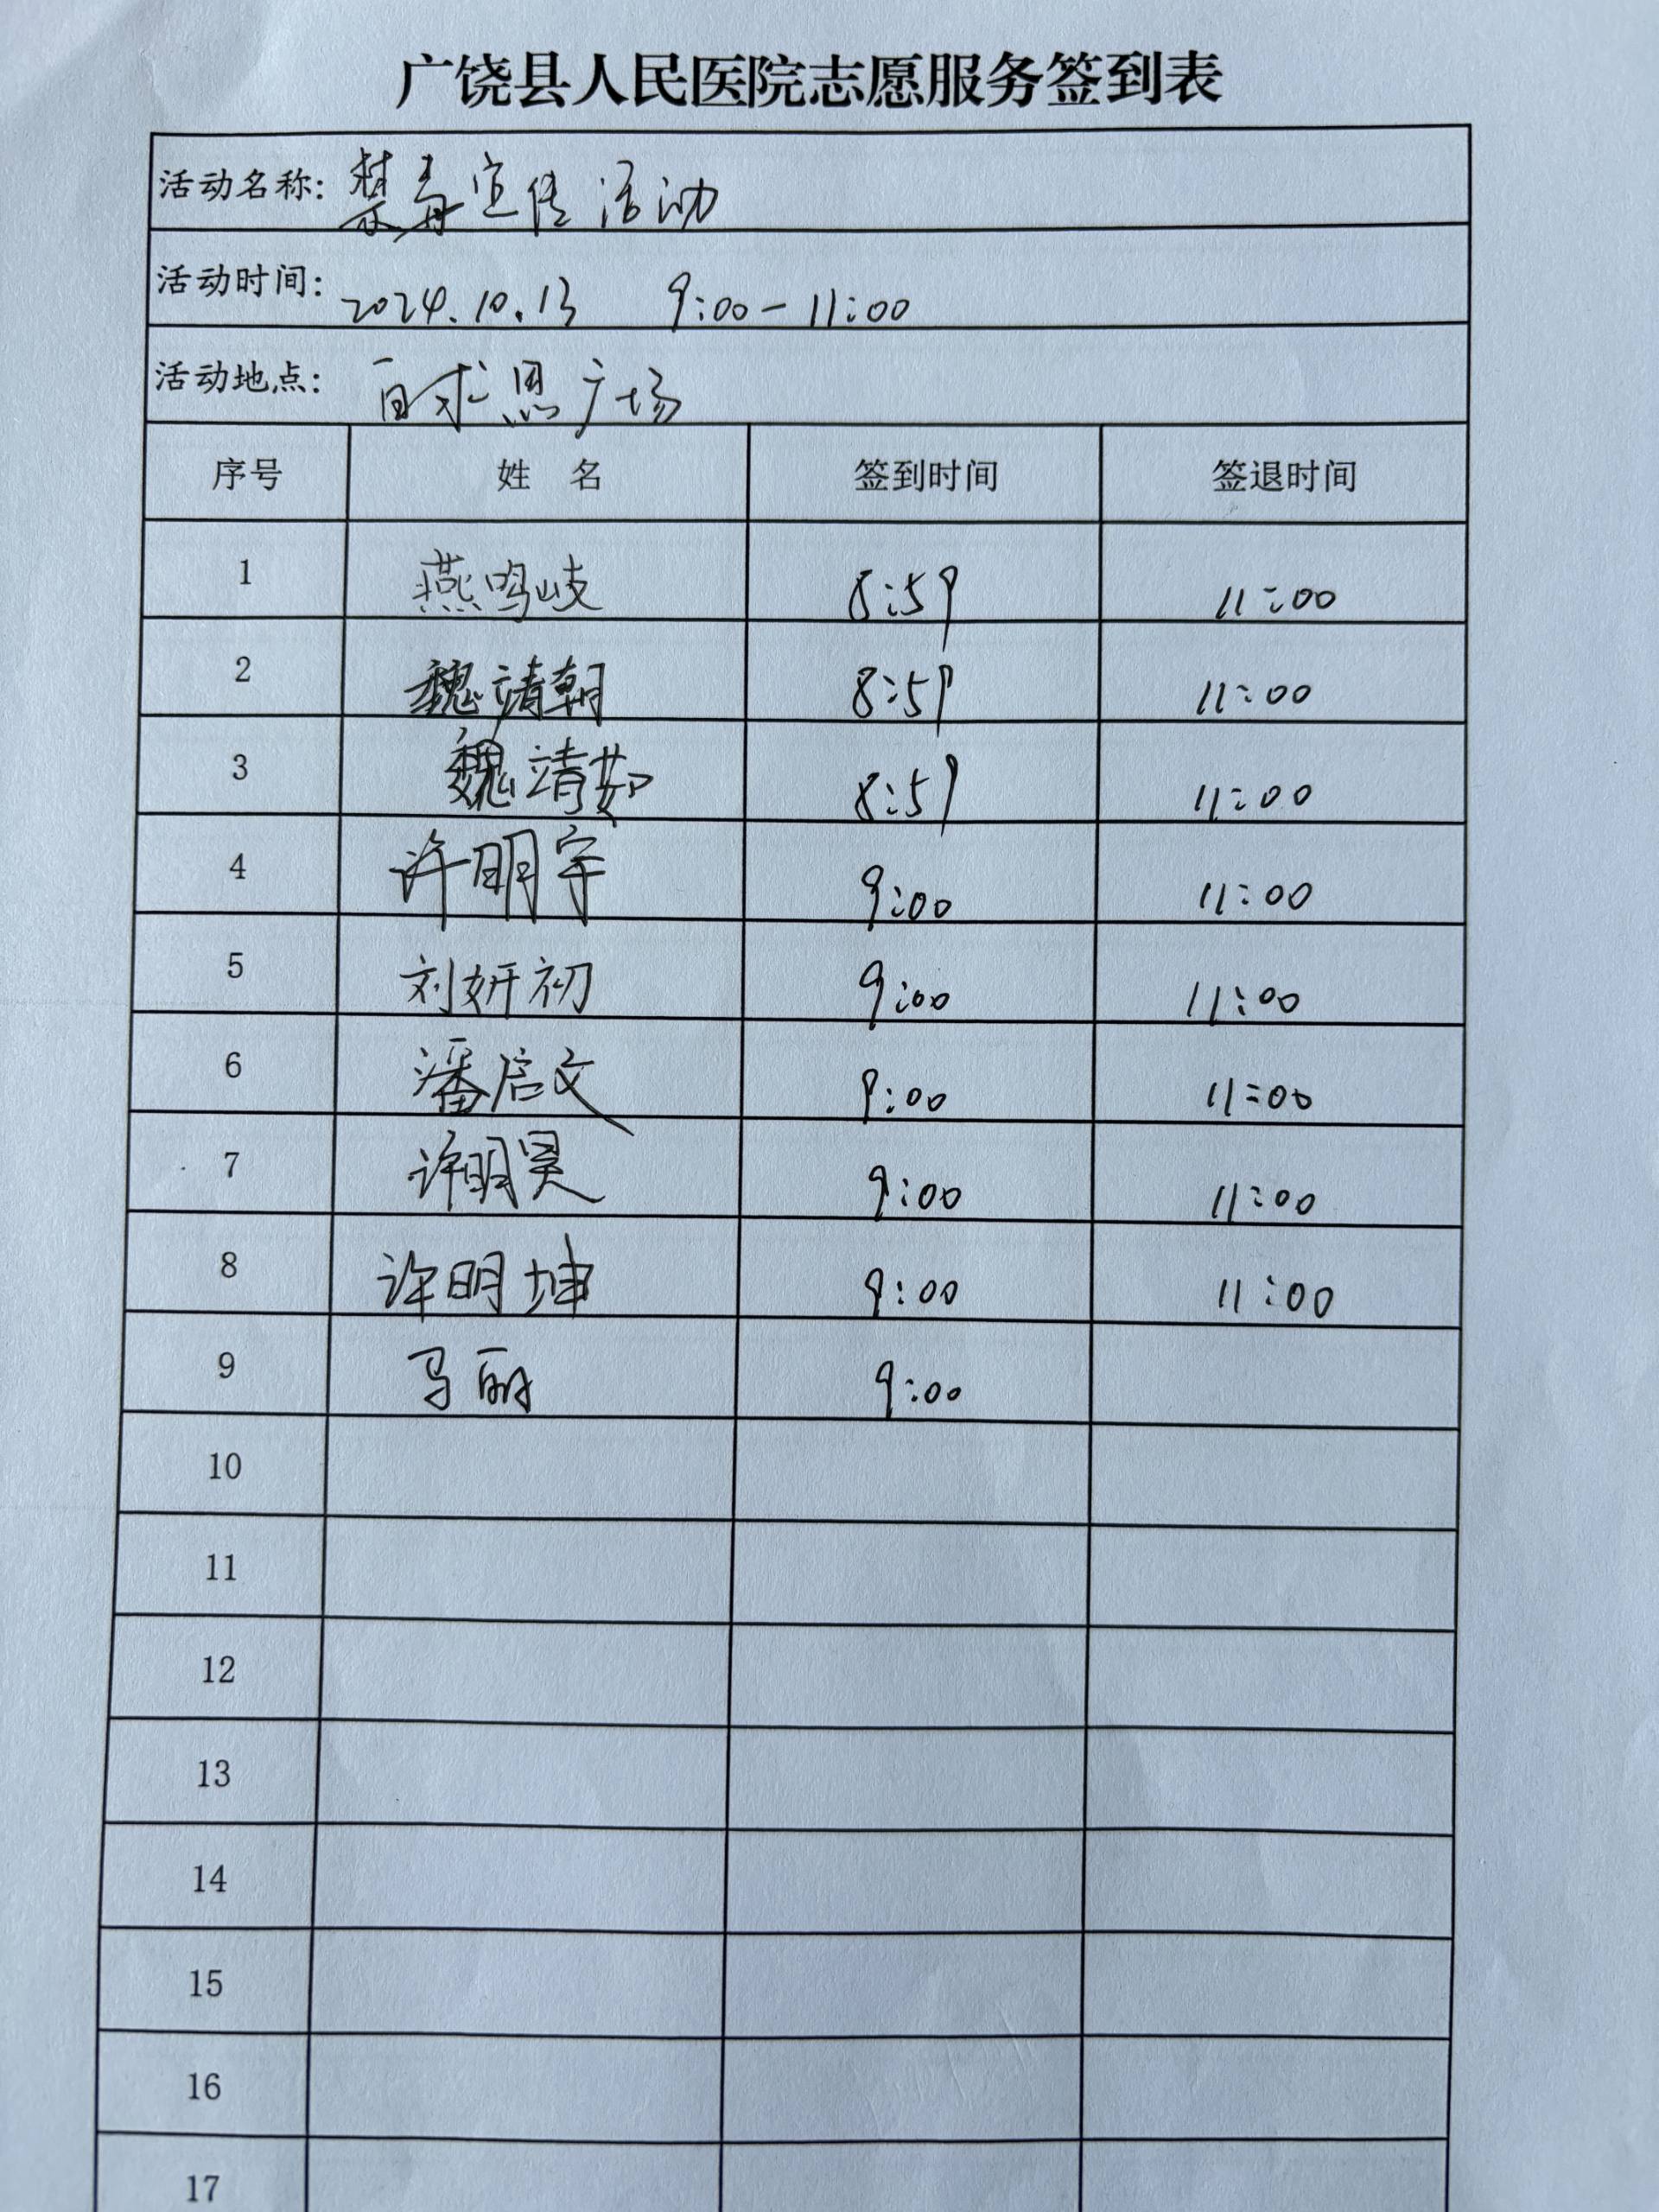 广饶县人民医院志愿服务签到表
活动名称: 禁毒宣传活动
活动时间: 2024.10.13 9:00-11:00
活动地点: 百求恩广场
序号 姓 名 签到时间 签退时间
1 燕鸣岐 8:59 11:00
2 魏靖朝 8:59 11:00
3 魏靖茹 8:59 11:00
4 许明宇 9:00 11:00
5 刘妍初 9:00 11:00
6 潘启文 9:00 11:00
7 许明昊 9:00 11:00
8 许明坤 9:00 11:00
9 马丽 9:00
10
11
12
13
14
15
16
17